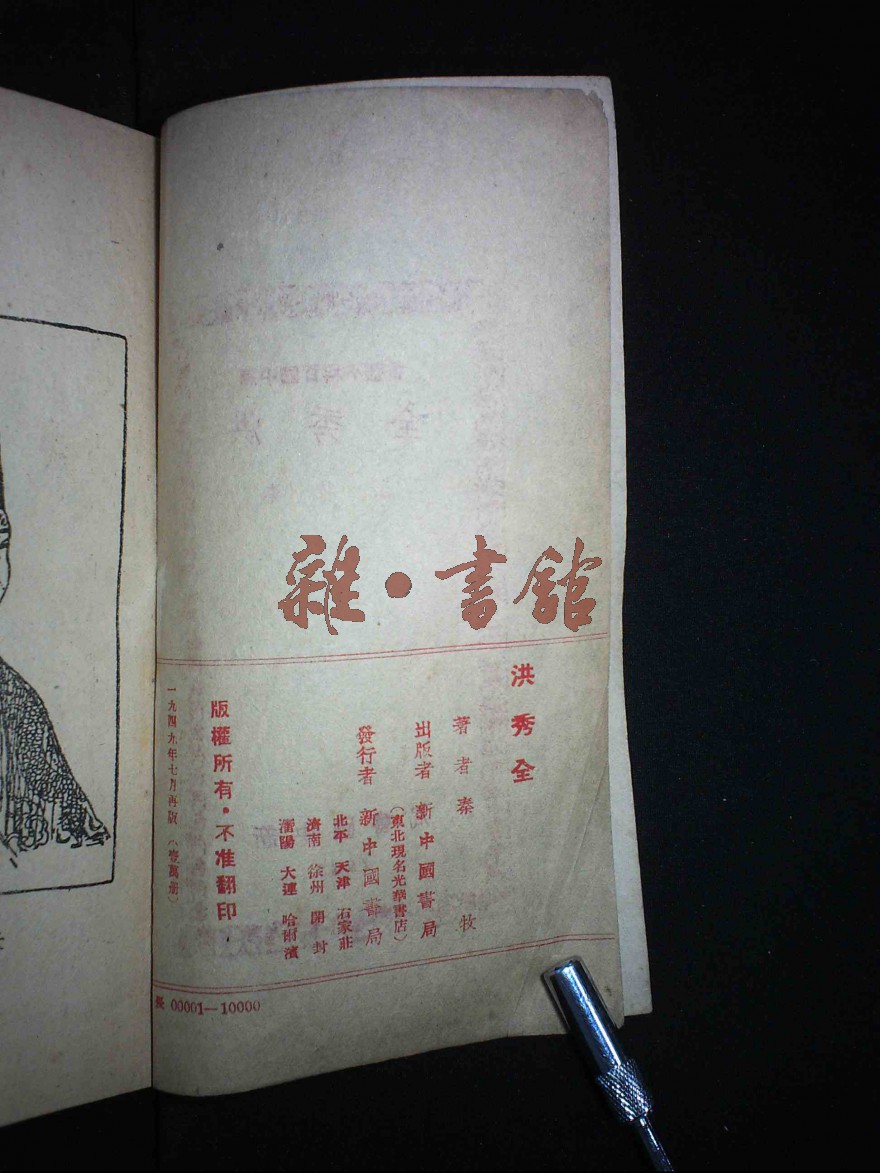 雜·書館
洪秀全
著者 秦牧
出版者 新中國書局
(東北現名光華書店)
發行者 新中國書局
北平 天津 石家莊
濟南 徐州 開封
瀋陽 大連 哈爾濱
版權所有·不准翻印
一九四九年七月再版(壹萬册)
長 00001—10000